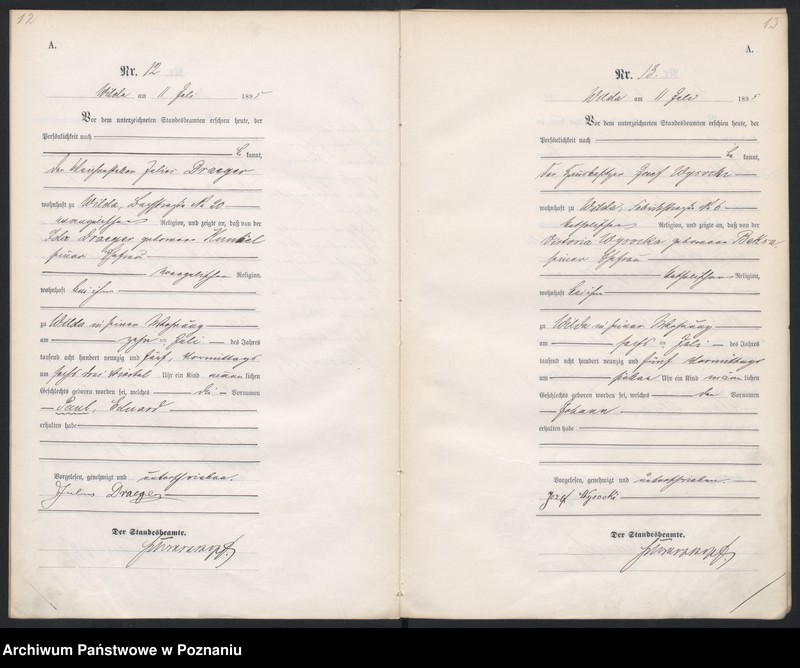 12
A.
Nr. 12
Wilda am 11 Juli 1895
Vor dem unterzeichneten Standesbeamten erschien heute, der
Persönlichkeit nach
be kannt,
der Julius Draeger
wohnhaft zu Wilda, No 20
evangelischer Religion, und zeigte an, daß von der
Ida Draeger geborenen Kunkel
seiner Ehefrau
evangelischer Religion,
wohnhaft bei ihm
zu Wilda in seiner Wohnung
am zehn ten Juli des Jahres
tausend acht hundert neunzig und fünf, Vormittags
um sechs drei Viertel Uhr ein Kind männ lichen
Geschlechts geboren worden sei, welches die Vornamen
Paul, Eduard
erhalten habe
Vorgelesen, genehmigt und unterschrieben.
Julius Draeger
Der Standesbeamte.
13
A.
Nr. 13.
Wilda am 11 Juli 1895
Vor dem unterzeichneten Standesbeamten erschien heute, der
Persönlichkeit nach
be kannt,
der Hausbesitzer Josef Wysocki
wohnhaft zu Wilda, No 6
katholischer Religion, und zeigte an, daß von der
Victoria Wysocka geborenen
seiner Ehefrau
katholischer Religion,
wohnhaft bei ihm
zu Wilda in seiner Wohnung
am sechs ten Juli des Jahres
tausend acht hundert neunzig und fünf Vormittags
um sieben Uhr ein Kind männ lichen
Geschlechts geboren worden sei, welches den Vornamen
Johann
erhalten habe
Vorgelesen, genehmigt und unterschrieben.
Josef Wysocki
Der Standesbeamte.
Archiwum Państwowe w Poznaniu